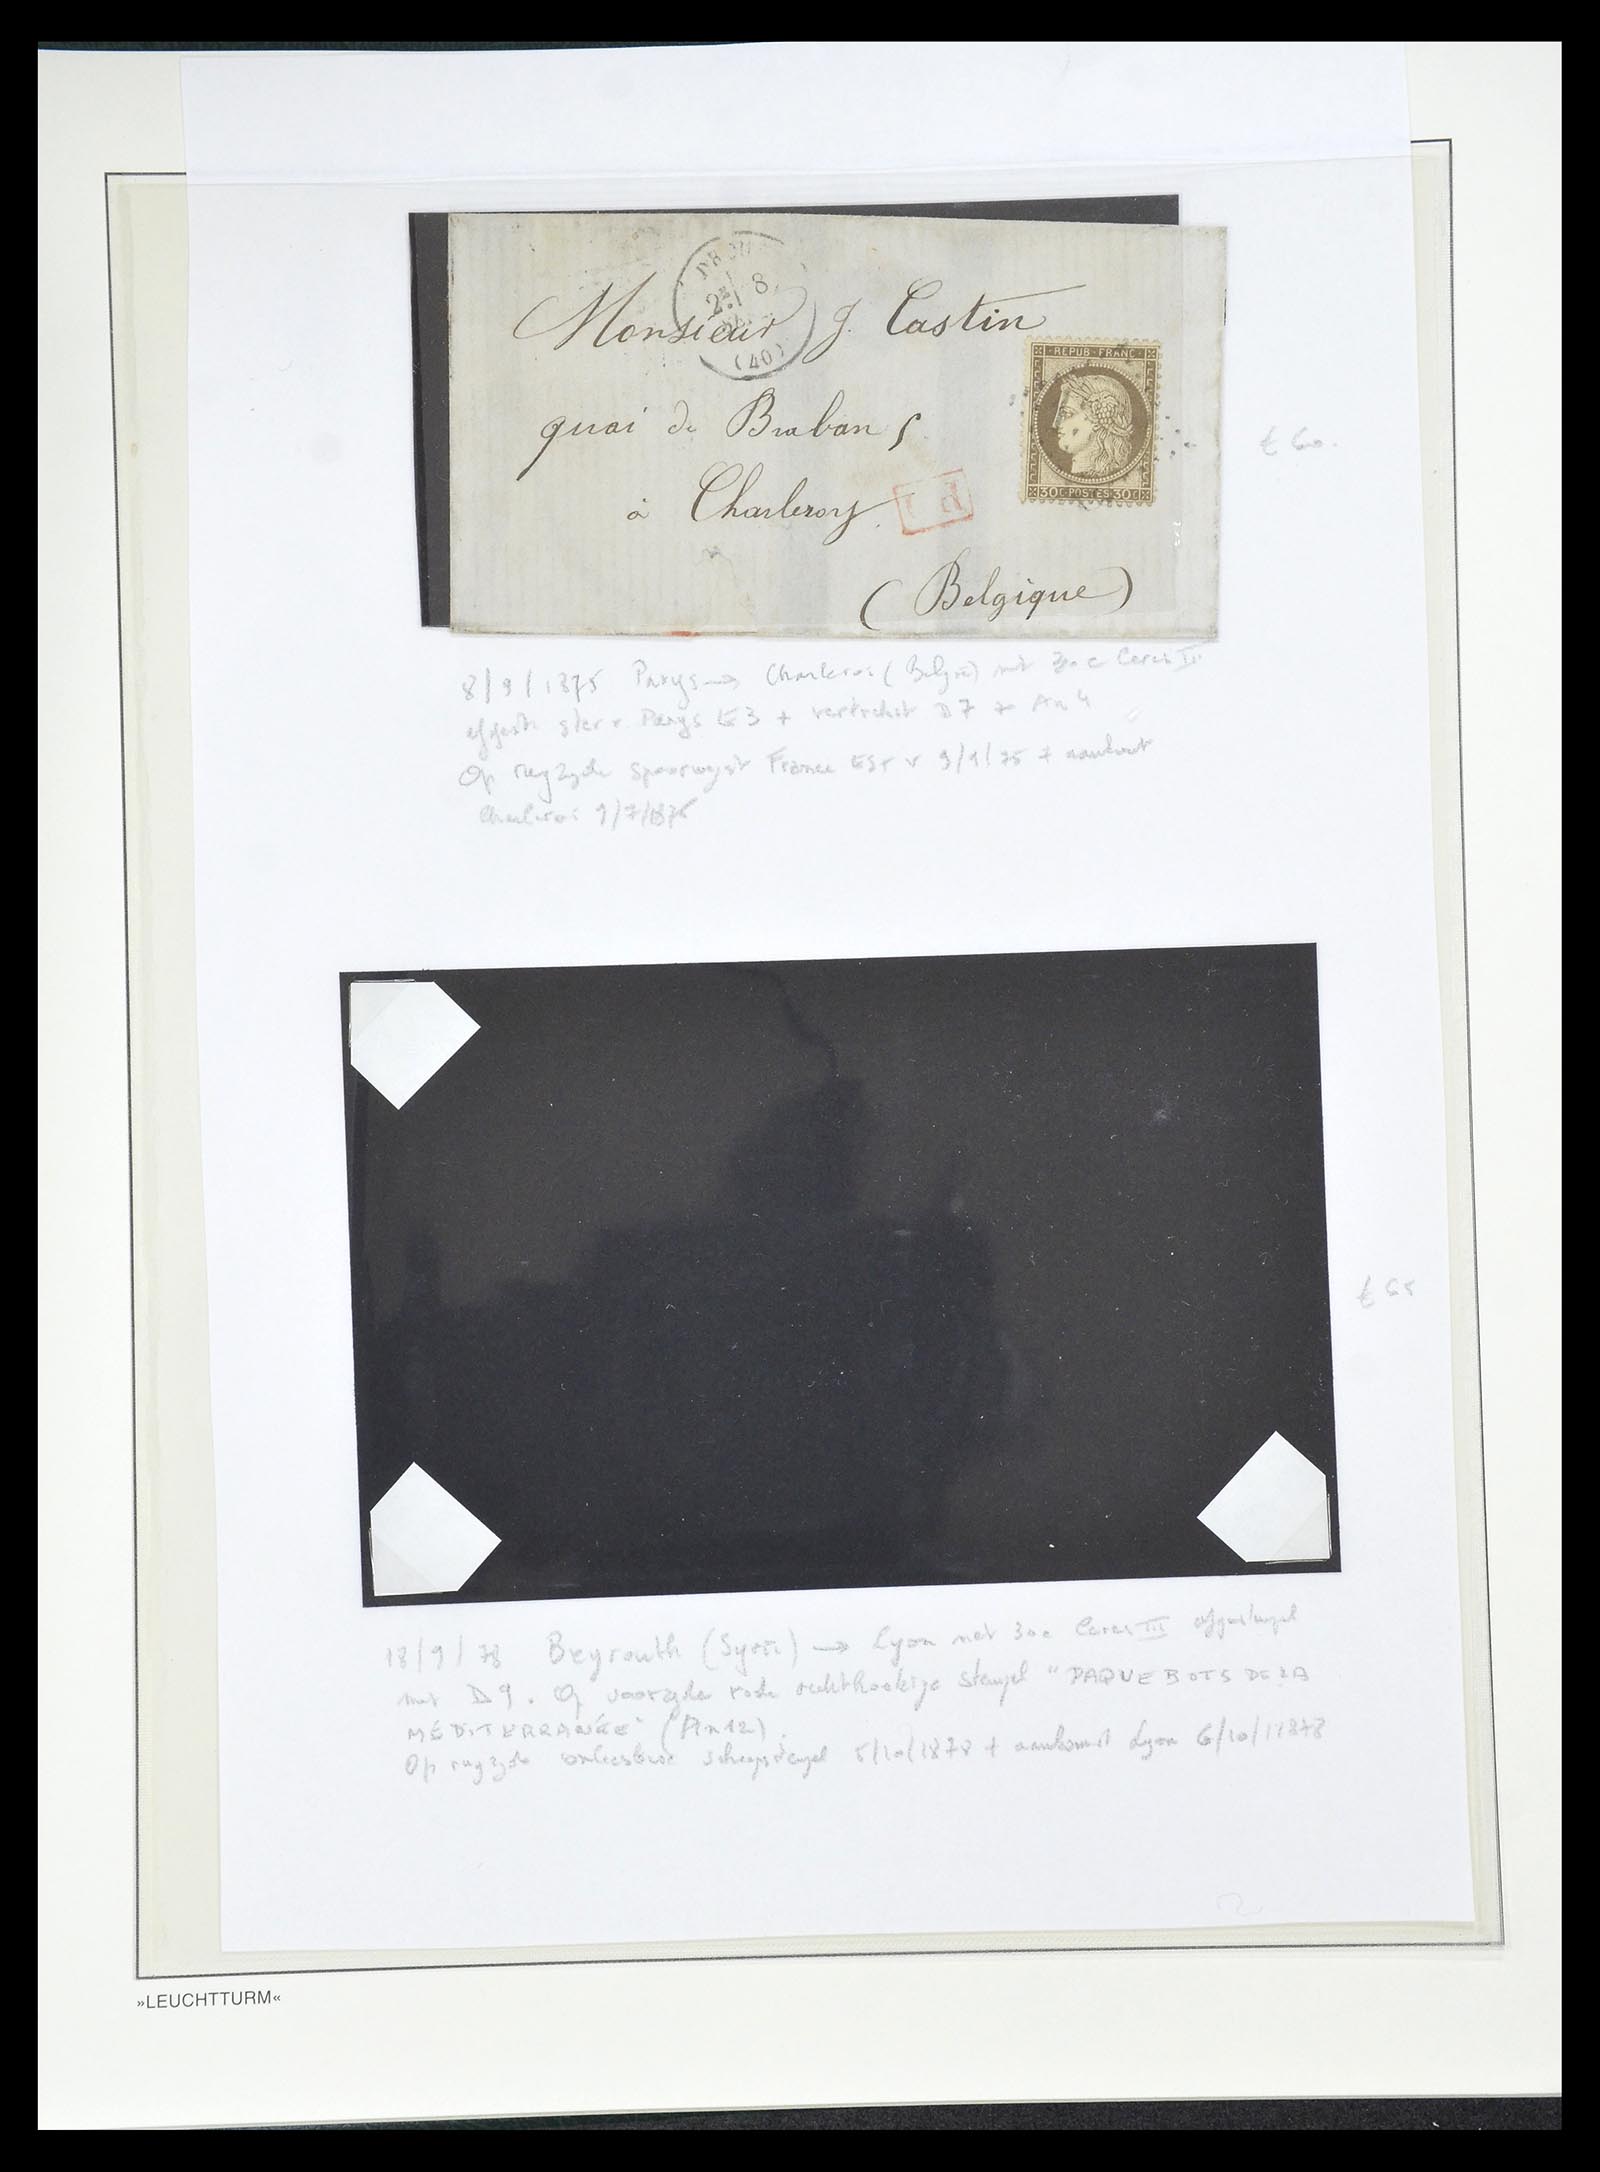 2 8
(40)
Monsieur J. Castin
REPUB FRANC
quai de Braban
30C POSTES 30C
€ 60.
à Charleroy
P D
(Belgique)
8/9/1875 Parys → Charleroi (België) met 30c Ceres III
ster Parys + vertrekst D7 + An 4
Op rugzyde spoorwegst France Est v 9/9/75 + aankomst
Charleroi 9/7/1875
€ 65
18/9/78 Beyrouth (Syrië) → Lyon met 30c Ceres III afgestempel
met D9. Op voorzyde rode rechthoekige stempel "PAQUEBOTS DE LA
MÉDITERRANÉE" (An 12).
Op rugzyde onleesbare scheepstempel 5/10/1878 + aankomst Lyon 6/10/1878
»LEUCHTTURM«